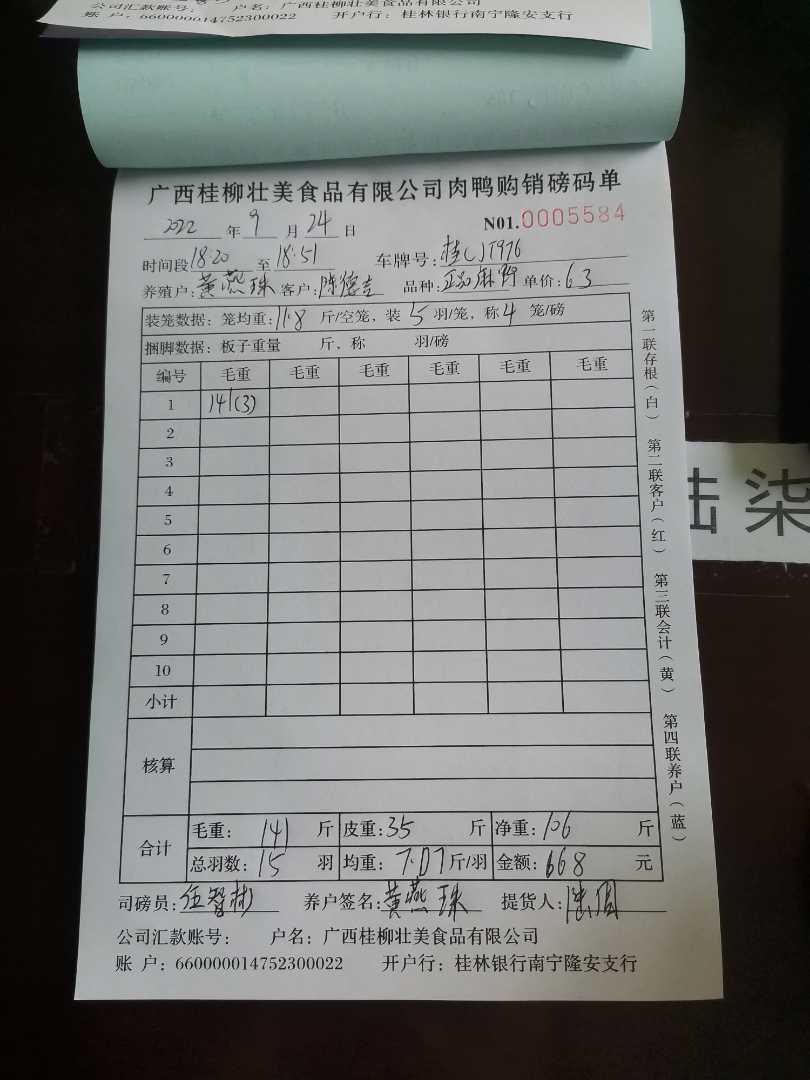 公司汇款账号： 户名：广西桂柳壮美食品有限公司
账 户：660000014752300022 开户行：桂林银行南宁隆安支行
广西桂柳壮美食品有限公司肉鸭购销磅码单
2022 年 9 月 24 日 N01.0005584
时间段 18:20 至 18:51 车牌号：桂 J1976
养殖户：黄燕珠 客户：陈德吉 品种：正品麻鸭 单价：6.3
装笼数据：笼均重：11.8 斤/空笼，装 5 羽/笼，称 4 笼/磅
捆脚数据：板子重量 斤，称 羽/磅
编号 毛重 毛重 毛重 毛重 毛重 毛重
1 141(3)
2
3
4
5
6
7
8
9
10
小计
核算
合计 毛重：141 斤 皮重：35 斤 净重：106 斤
总羽数：15 羽 均重：7.07 斤/羽 金额：668 元
司磅员：伍智彬 养户签名：黄燕珠 提货人：
公司汇款账号： 户名：广西桂柳壮美食品有限公司
账 户：660000014752300022 开户行：桂林银行南宁隆安支行
第一联存根（白） 第二联客户（红） 第三联会计（黄） 第四联养户（蓝）
陆柒